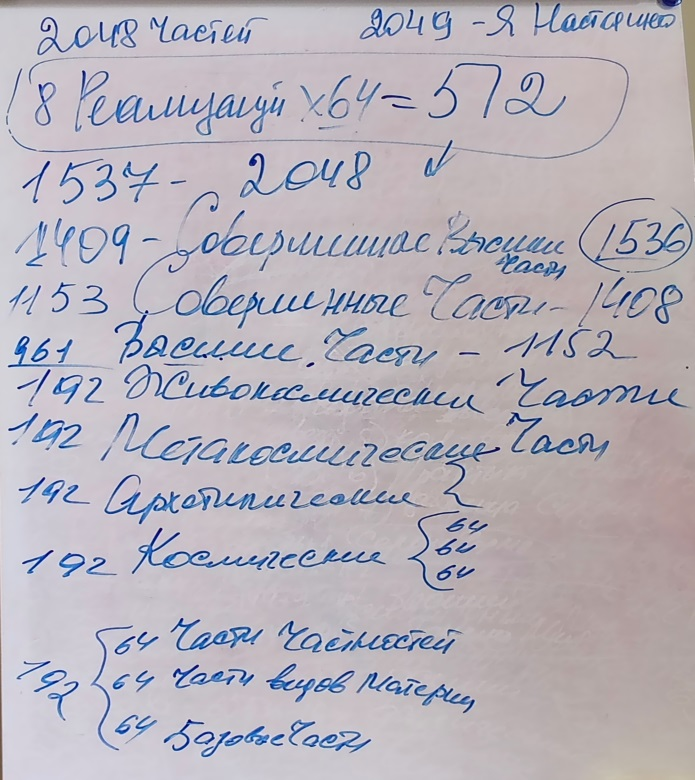 2048 Частей 2049 - Я Настоящего
8 Реализаций x 64 = 572
1537 - 2048
1409 - Совершенные Высшие Части 1536
1153 Совершенные Части - 1408
961 Высшие Части - 1152
192 Живокосмические Части
192 Метакосмические Части
192 Архетипические {
192 Космические { 64
64
64
192 { 64 Части Частностей
64 Части видов Материи
64 Базовые Части